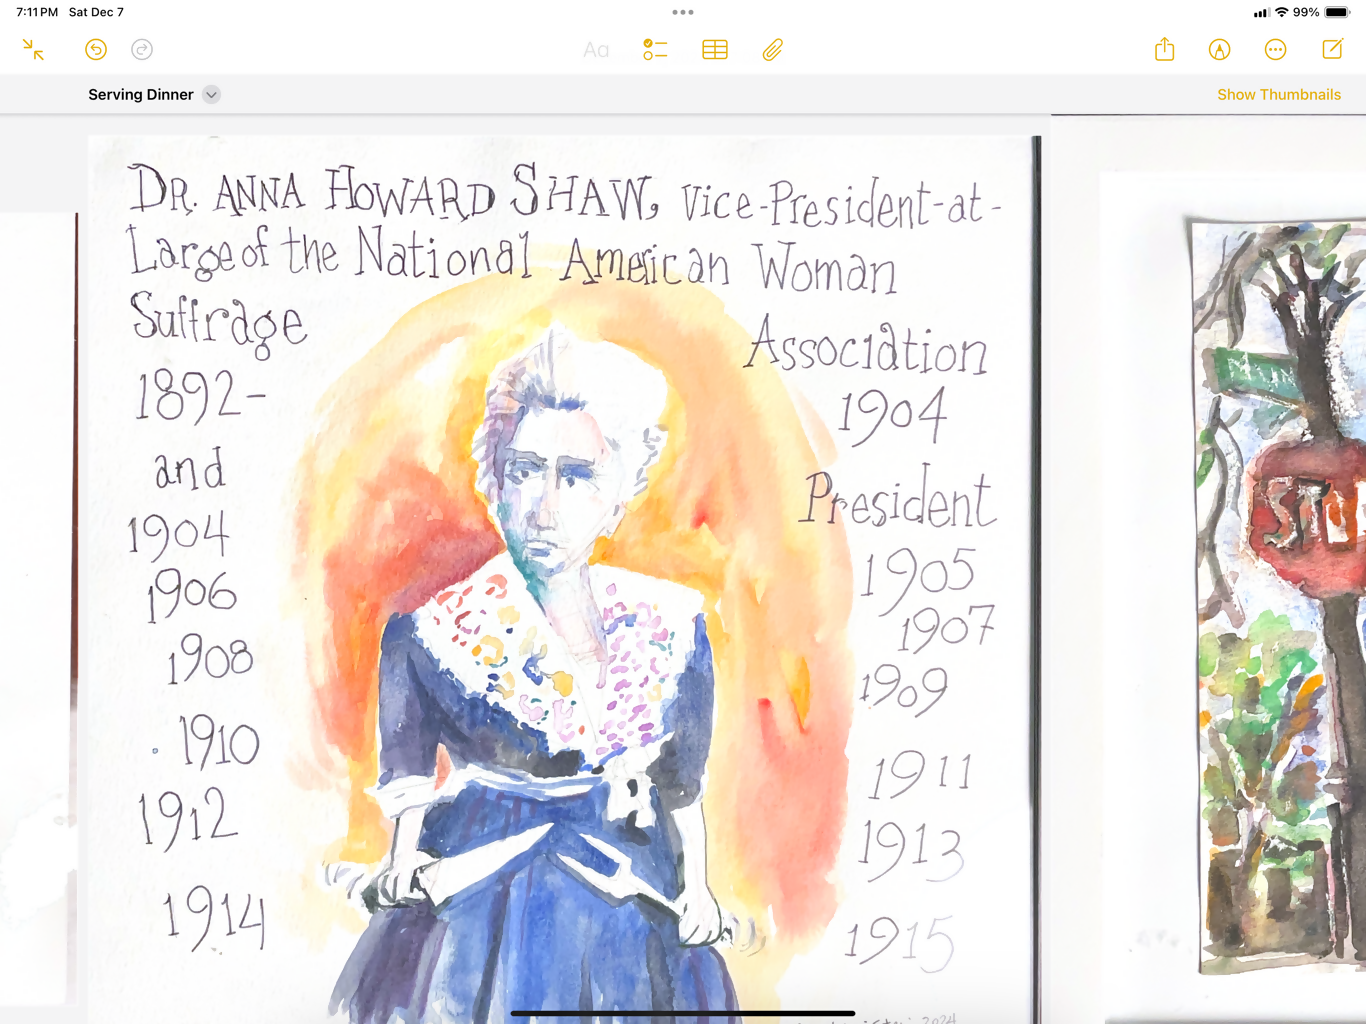 7:11 PM Sat Dec 7
99%
Aa
Serving Dinner
Show Thumbnails
DR. ANNA HOWARD SHAW, Vice-President-at-
Large of the National American Woman
Suffrage Association
1892- 1904
and President
1904 1905
1906 1907
1908 1909
1910 1911
1912 1913
1914 1915
2024